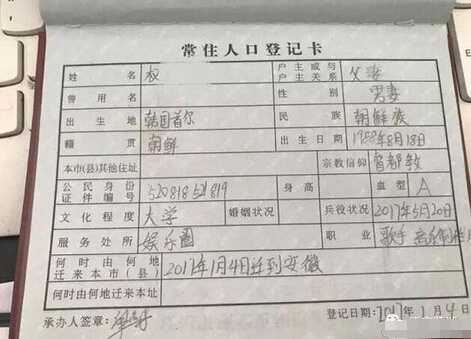 常住人口登记卡
姓名 权 户主或与户主关系 父妻
曾用名 性别 男妻
出生地 韩国首尔 民族 朝鲜族
籍贯 朝鲜 出生日期 1988年8月18日
本市(县)其他住址 宗教信仰 督都教
公民身份证件编号 520818521819 身高 血型 A
文化程度 大学 婚姻状况 兵役状况 2017年5月20日
服务处所 娱乐圈 职业 歌手 音乐制作
何时由何地迁来本市(县) 2017年1月4日迁到安徽
何时由何地迁来本址
承办人签章: 登记日期: 2017年1月4日